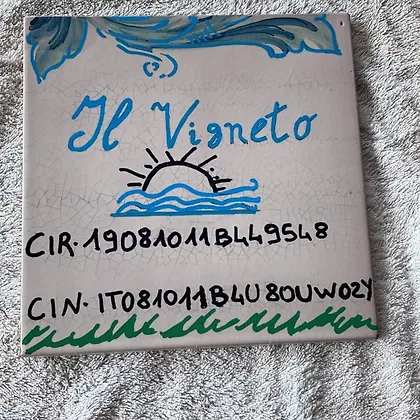 Il Vigneto
CIR. 19081011B449548
CIN. IT081011B4U80UWOZY